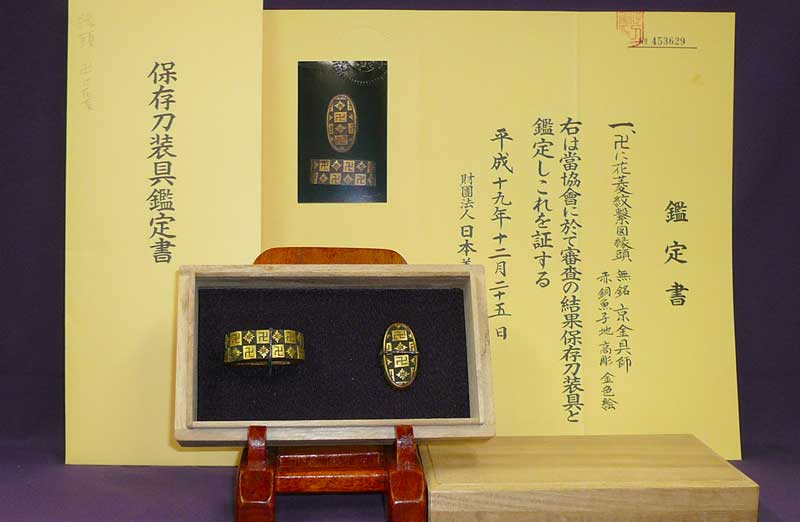 鑑定書
一、卍に花菱紋繋図縁頭 無銘 京金具師
赤銅魚子地 高彫 金色絵
右は當協會に於て審査の結果保存刀装具と
鑑定しこれを証する
平成十九年十二月二十五日
財團法人日本美
保存刀装具鑑定書
№ 453629